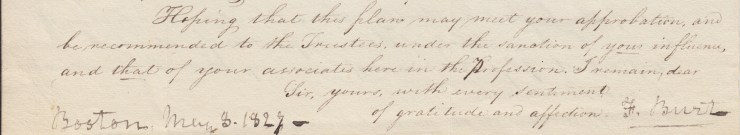 Hoping that this plan may meet your approbation, and
be recommended to the Trustees, under the sanction of your influence,
and that of your associates here in the Profession. I remain, dear
Sir, yours, with every sentiment
of gratitude and affection. F. Burt
Boston, May 3. 1827 -